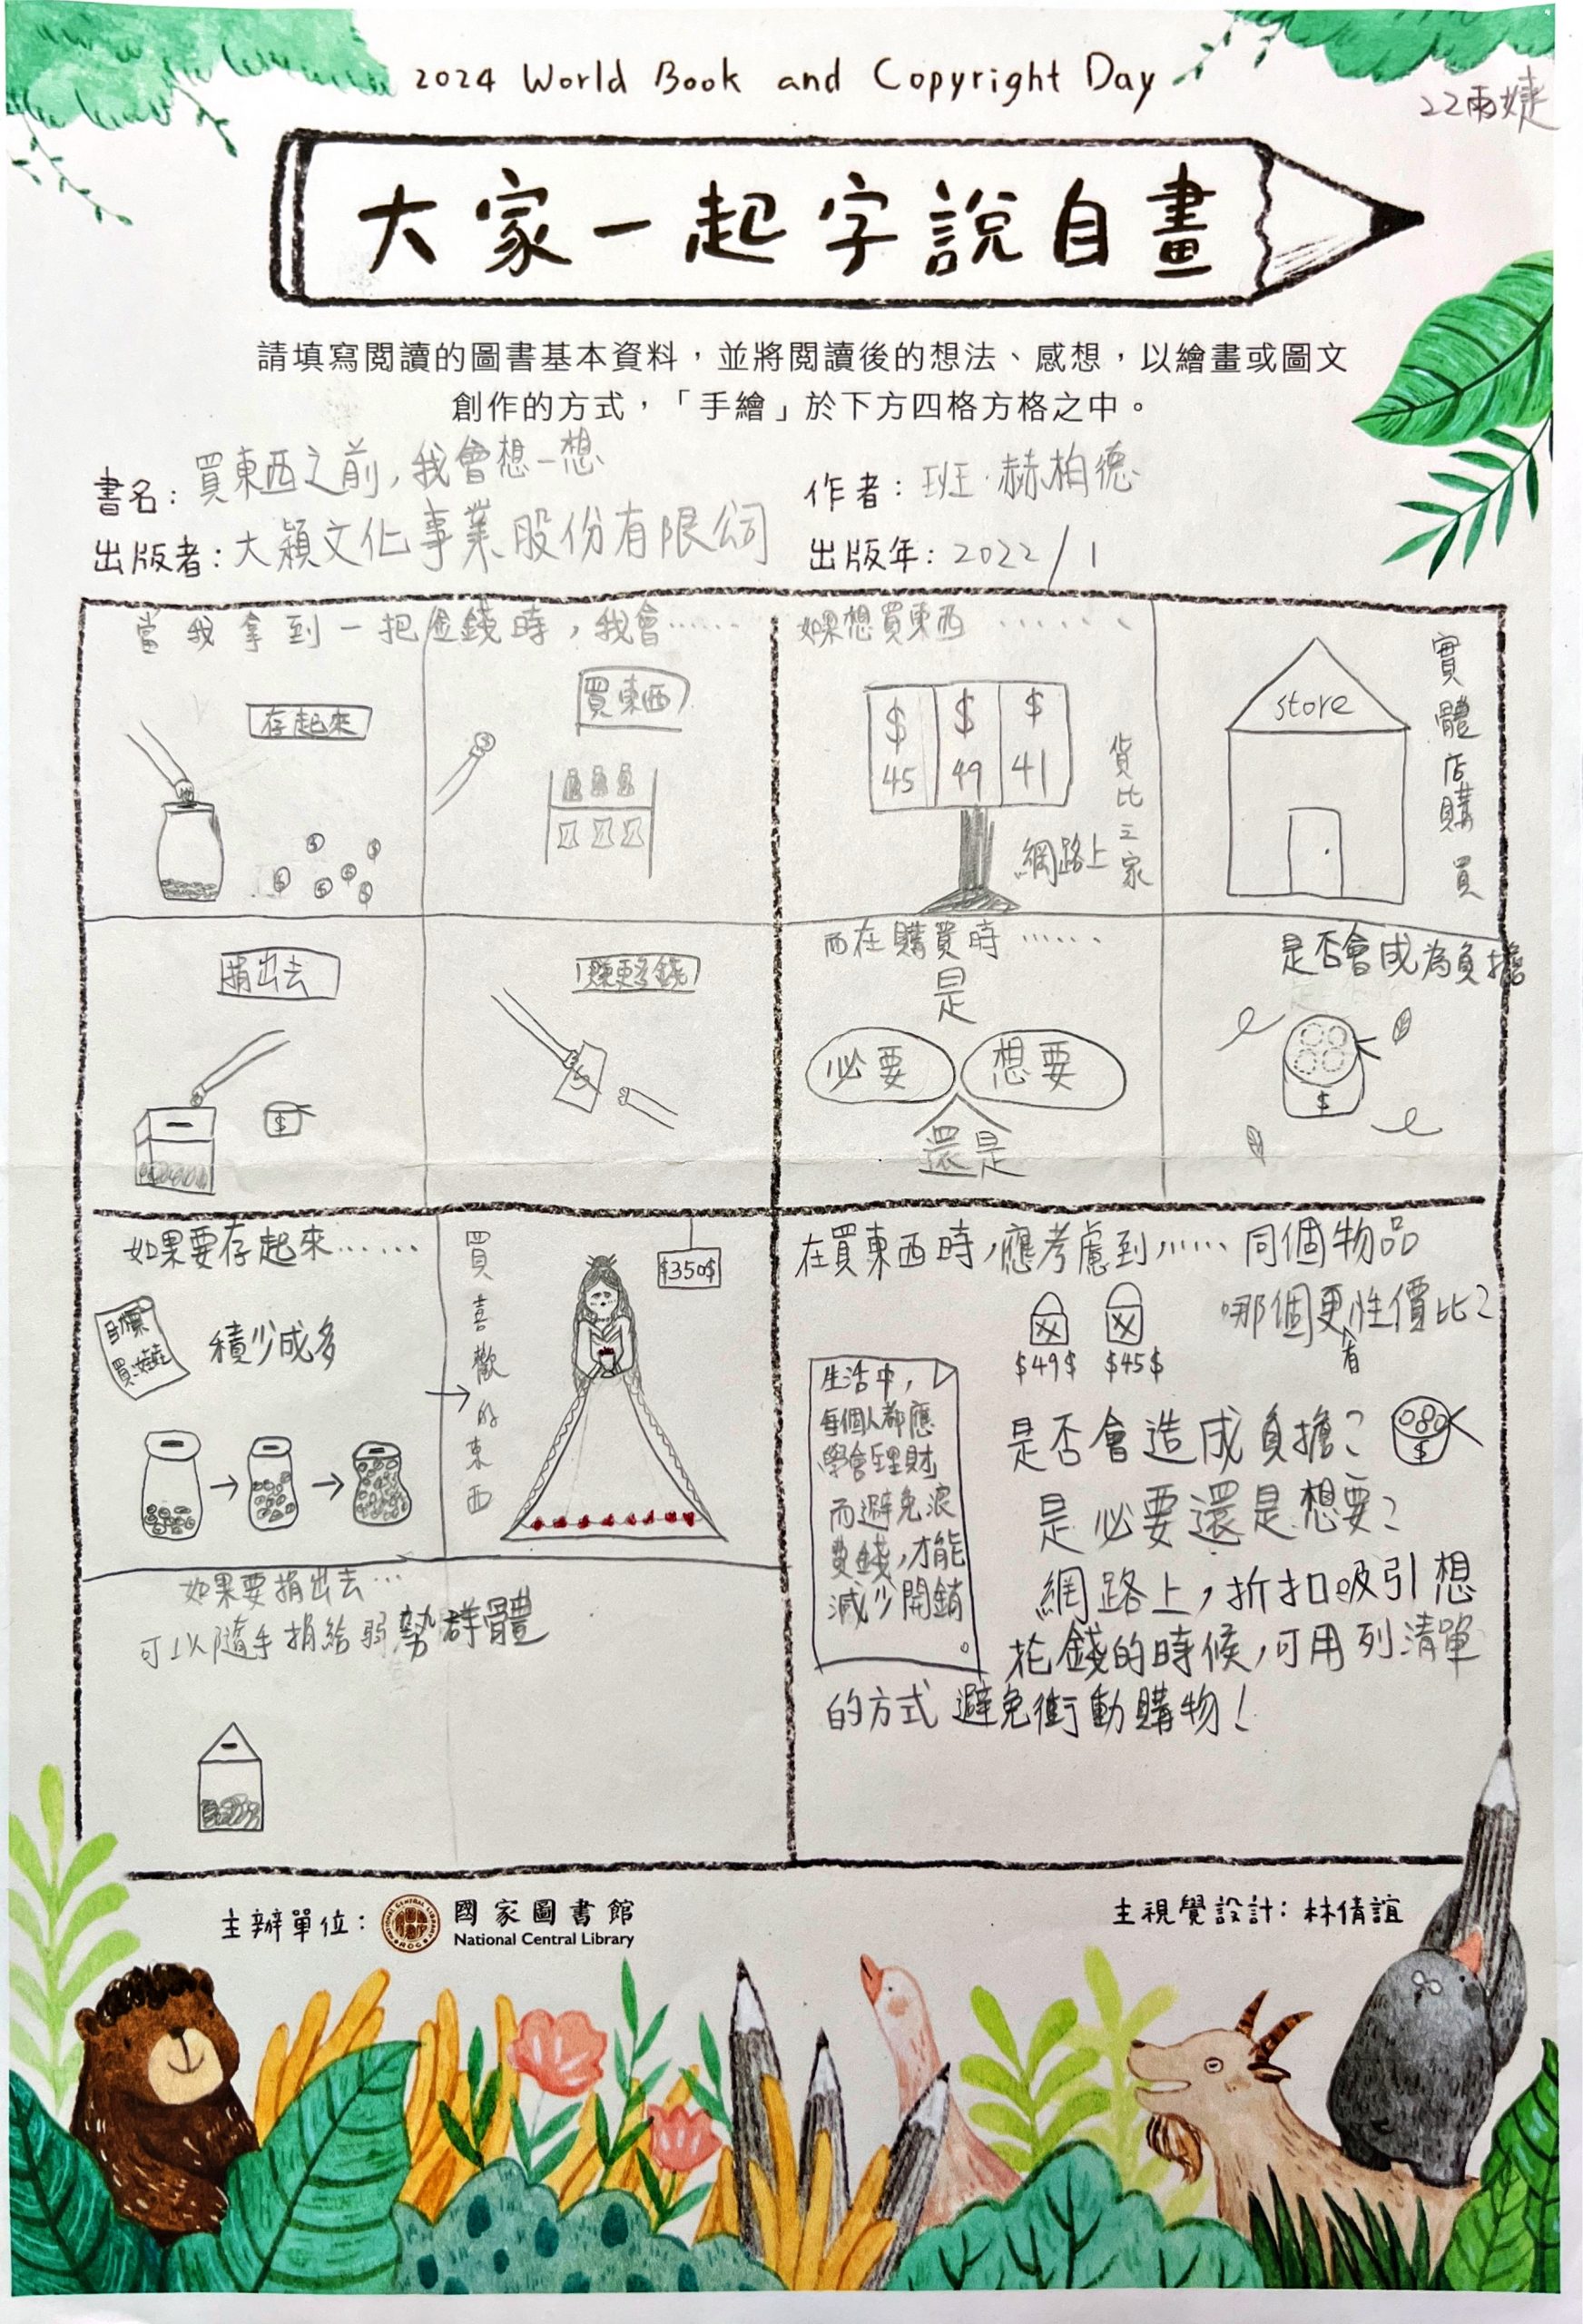 2024 World Book and Copyright Day
22雨婕
大家一起字說自畫
請填寫閱讀的圖書基本資料，並將閱讀後的想法、感想，以繪畫或圖文
創作的方式，「手繪」於下方四格方格之中。
書名：買東西之前，我會想一想
作者：班·赫柏德
出版者：大穎文化事業股份有限公司
出版年：2022/1
當我拿到一把金錢時，我會……
存起來
買東西
捐出去
賺更多錢
如果想買東西……
$45
$49
$41
網路上
貨比三家
store
實體店購買
而在購買時……
是
必要
想要
還是
是否會成為負擔
$
如果要存起來……
目標
買娃娃
積少成多
買喜歡的東西
$350$
如果要捐出去…
可以隨手捐給弱勢群體
在買東西時，應考慮到……同個物品
哪個更有性價比？
$49$
$45$
是否會造成負擔？
$
是必要還是想要？
生活中，
每個人都應
學會理財
而避免浪
費錢，才能
減少開銷
。
網路上，折扣吸引想
花錢的時候，可用列清單
的方式避免衝動購物！
主辦單位：國家圖書館
National Central Library
主視覺設計：林倩誼